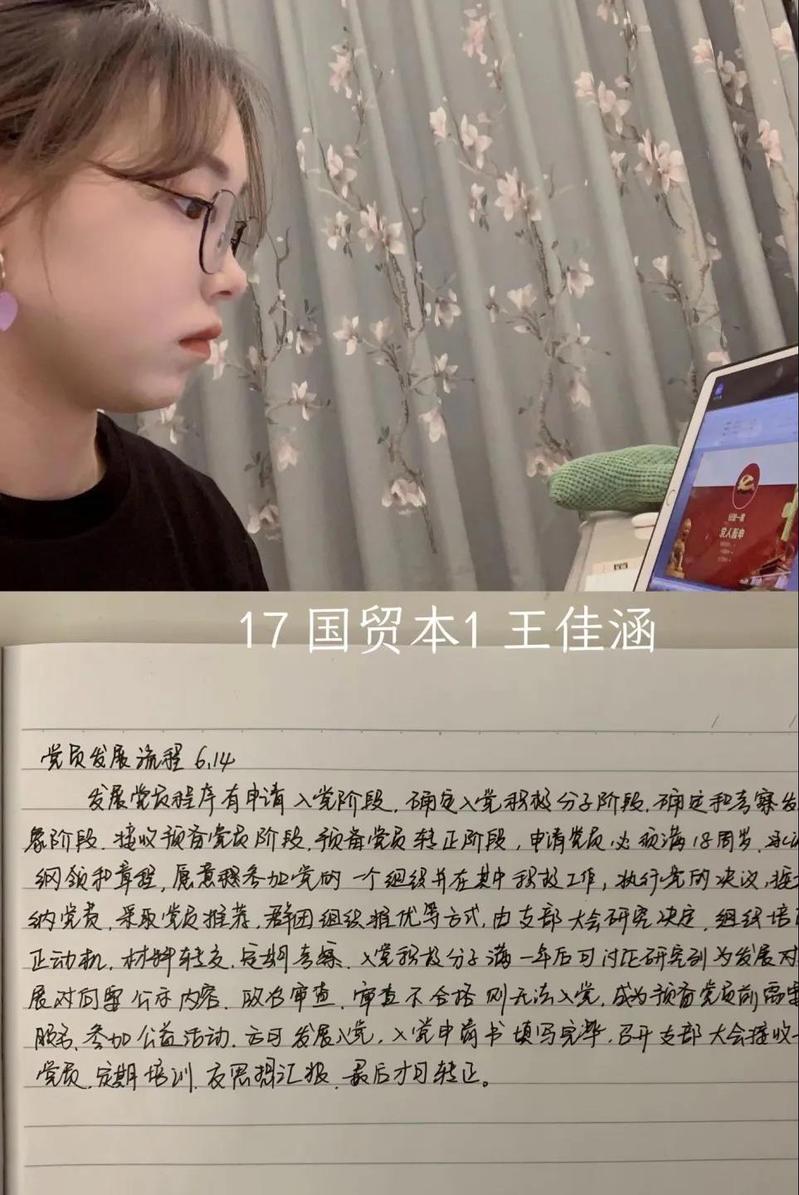 17 国贸本1 王佳涵
党员发展流程 6.14
发展党员程序有申请入党阶段、确定入党积极分子阶段、确定和考察发
象阶段、接收预备党员阶段、预备党员转正阶段，申请党员必须满18周岁、承认
纲领和章程，愿意参加党的一个组织并在其中积极工作，执行党的决议，按
纳党员，采取党员推荐、群团组织推优等方式，由支部大会研究决定，组织培
正动机、材料转交、定期考察、入党积极分子满一年后可讨论研究列为发展对
展对向 公示内容、政治审查，审查不合格则无法入党，成为预备党员前需
服务、参加公益活动、方可发展入党，入党申请书填写完毕，召开支部大会接收
党员、定期培训、及思想汇报、最后才可转正。